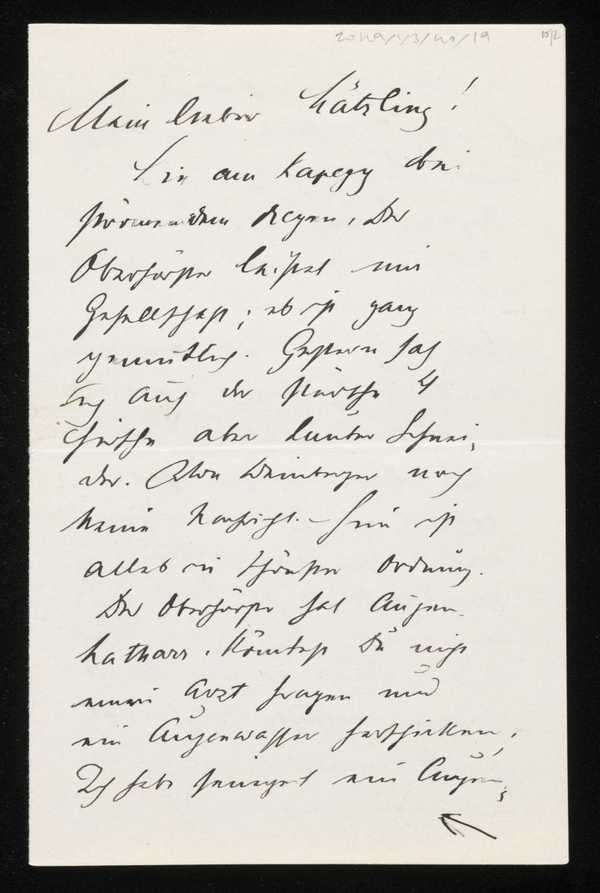 2049/43/40/19
10/2
Mein lieber Kätzling!
Bin am Kapegg bei
strömendem Regen. Der
Oberförster leistet mir
Gesellschaft; es ist ganz
gemütlich. Gestern sah
ich auf der Pürsche 4
Hirsche aber lauter Schnei,
der. Von Weinberger noch
keine Nachricht. – Hier ist
alles in schönster Ordnung.
Der Oberförster hat Augen-
katharr. Könntest Du nicht
einen Arzt fragen und
ein Augenwasser herschicken.
Ich habe seinerzeit ein Augen,